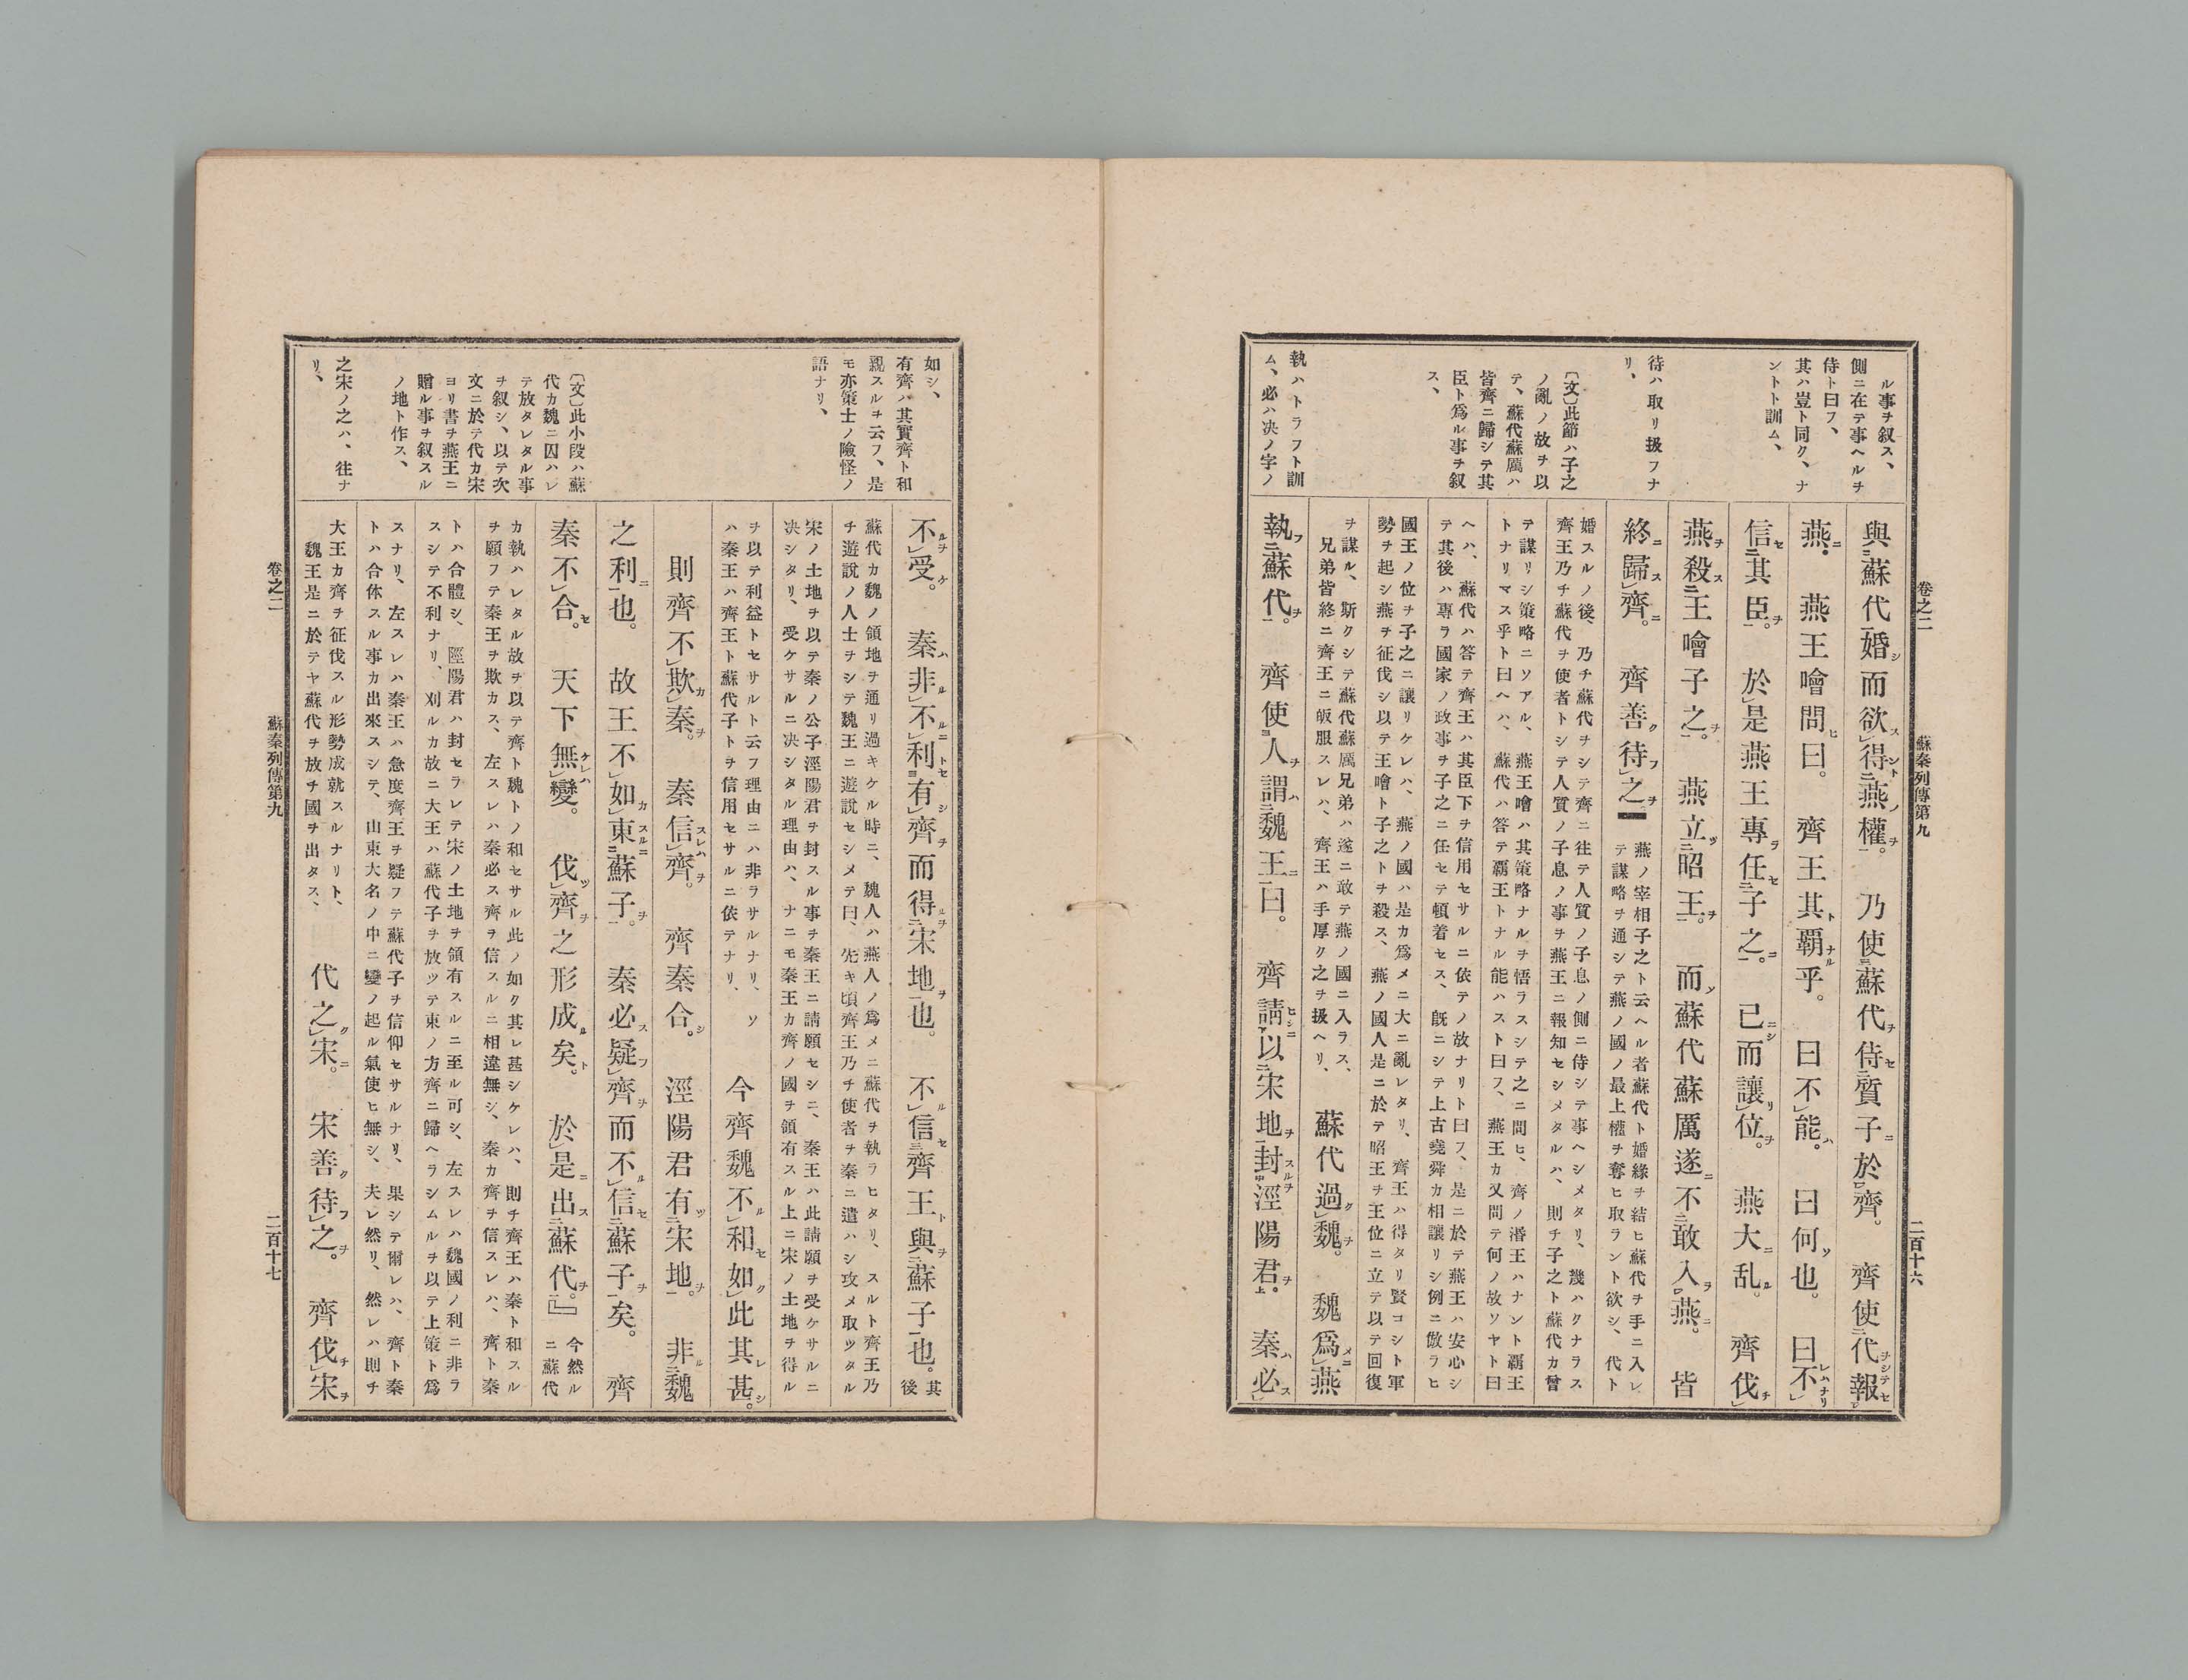 卷之二　蘇秦列傳第九　二百十六
ル事チ叙ス、
側ニ在テ事ヘルチ
侍ト曰フ、
其ハ豈ト同ク、ナ
ントト訓ム、
待ハ取リ扱フナ
リ、
〔文〕此節ハ子之
ノ亂ノ故チ以
テ、蘇代蘇厲ハ
皆齊ニ歸シテ其
臣ト爲ル事チ叙
ス、
執ハトラフト訓
ム、必ハ决ノ字ノ
與蘇代婚而欲得燕權。乃使蘇代侍質子於齊。齊使代報
燕。燕王噲問曰。齊王其覇乎。曰不能。曰何也。曰不
信其臣。於是燕王專任子之。已而讓位。燕大乱。齊伐
燕殺王噲子之。燕立昭王。而蘇代蘇厲遂不敢入燕。皆
終歸齊。齊善待之
燕ノ宰相子之ト云ヘル者蘇代ト婚緣チ結ヒ蘇代チ手ニ入レ
テ謀略チ通シテ燕ノ國ノ最上權チ奪ヒ取ラント欲シ、代ト
婚スルノ後、乃チ蘇代チシテ齊ニ往テ人質ノ子息ノ側ニ侍シテ事ヘシメタリ、幾ハクナラス
齊王乃チ蘇代チ使者トシテ人質ノ子息ノ事チ燕王ニ報知セシメタルハ、則チ子之ト蘇代カ曾
テ謀リシ策略ニソアル、燕王噲ハ其策略ナルチ悟ラスシテ之ニ問ヒ、齊ノ湣王ハナント覇王
トナリマス乎ト曰ヘハ、蘇代ハ答テ覇王トナル能ハスト曰フ、燕王カ又問テ何ノ故ソヤト曰
ヘハ、蘇代ハ答テ齊王ハ其臣下チ信用セサルニ依テノ故ナリト曰フ、是ニ於テ燕王ハ安心シ
テ其後ハ專ラ國家ノ政事チ子之ニ任セテ頓着セス、既ニシテ上古堯舜カ相讓リシ例ニ倣ラヒ
國王ノ位チ子之ニ讓リケレハ、燕ノ國ハ是カ爲メニ大ニ亂レタリ、齊王ハ得タリ賢コシト軍
勢チ起シ燕チ征伐シ以テ王噲ト子之トチ殺ス、燕ノ國人是ニ於テ昭王チ王位ニ立テ以テ回復
チ謀ル、斯クシテ蘇代蘇厲兄弟ハ遂ニ敢テ燕ノ國ニ入ラス、
兄弟皆終ニ齊王ニ皈服スレハ、齊王ハ手厚ク之チ扱ヘリ、
蘇代過魏。魏爲燕
執蘇代。齊使人謂魏王曰。齊請以宋地封涇陽君。秦必
如シ、
有齊ハ其實齊ト和
親スルチ云フ、是
モ亦策士ノ險怪ノ
語ナリ、
〔文〕此小段ハ蘇
代カ魏ニ囚ハレ
テ放タレタル事
チ叙シ、以テ次
文ニ於テ代カ宋
ヨリ書チ燕王ニ
贈ル事チ叙スル
ノ地ト作ス、
之宋ノ之ハ、往ナ
リ、
不受。秦非不利有齊而得宋地也。不信齊王與蘇子也。
其
後
蘇代カ魏ノ領地チ通リ過キケル時ニ、魏人ハ燕人ノ爲メニ蘇代チ執ラヒタリ、スルト齊王乃
チ遊說ノ人士チシテ魏王ニ遊說セシメテ曰、先キ頃齊王乃チ使者チ秦ニ遣ハシ攻メ取ツタル
宋ノ土地チ以テ秦ノ公子涇陽君チ封スル事チ秦王ニ請願セシニ、秦王ハ此請願チ受ケサルニ
决シタリ、受ケサルニ决シタル理由ハ、ナニモ秦王カ齊ノ國チ領有スル上ニ宋ノ土地チ得ル
チ以テ利益トセサルト云フ理由ニハ非ラサルナリ、ソ
ハ秦王ハ齊王ト蘇代子トチ信用セサルニ依テナリ、
今齊魏不和如此其甚。
則齊不欺秦。秦信齊。齊秦合。涇陽君有宋地。非魏
之利也。故王不如東蘇子。秦必疑齊而不信蘇子矣。齊
秦不合。天下無變。伐齊之形成矣。於是出蘇代。』
今然ル
ニ蘇代
カ執ハレタル故チ以テ齊ト魏トノ和セサル此ノ如ク其レ甚シケレハ、則チ齊王ハ秦ト和スル
チ願フテ秦王チ欺カス、左スレハ秦必ス齊チ信スルニ相違無シ、秦カ齊チ信スレハ、齊ト秦
トハ合體シ、陘陽君ハ封セラレテ宋ノ土地チ領有スルニ至ル可シ、左スレハ魏國ノ利ニ非ラ
スシテ不利ナリ、刈ルカ故ニ大王ハ蘇代子チ放ツテ東ノ方齊ニ歸ヘラシムルチ以テ上策ト爲
スナリ、左スレハ秦王ハ急度齊王チ疑フテ蘇代子チ信仰セサルナリ、果シテ爾レハ、齊ト秦
トハ合体スル事カ出來スシテ、山東大名ノ中ニ變ノ起ル氣使ヒ無シ、夫レ然リ、然レハ則チ
大王カ齊チ征伐スル形勢成就スルナリト、
魏王是ニ於テヤ蘇代チ放チ國チ出タス、
代之宋。宋善待之。齊伐宋
卷之二　蘇秦列傳第九　二百十七